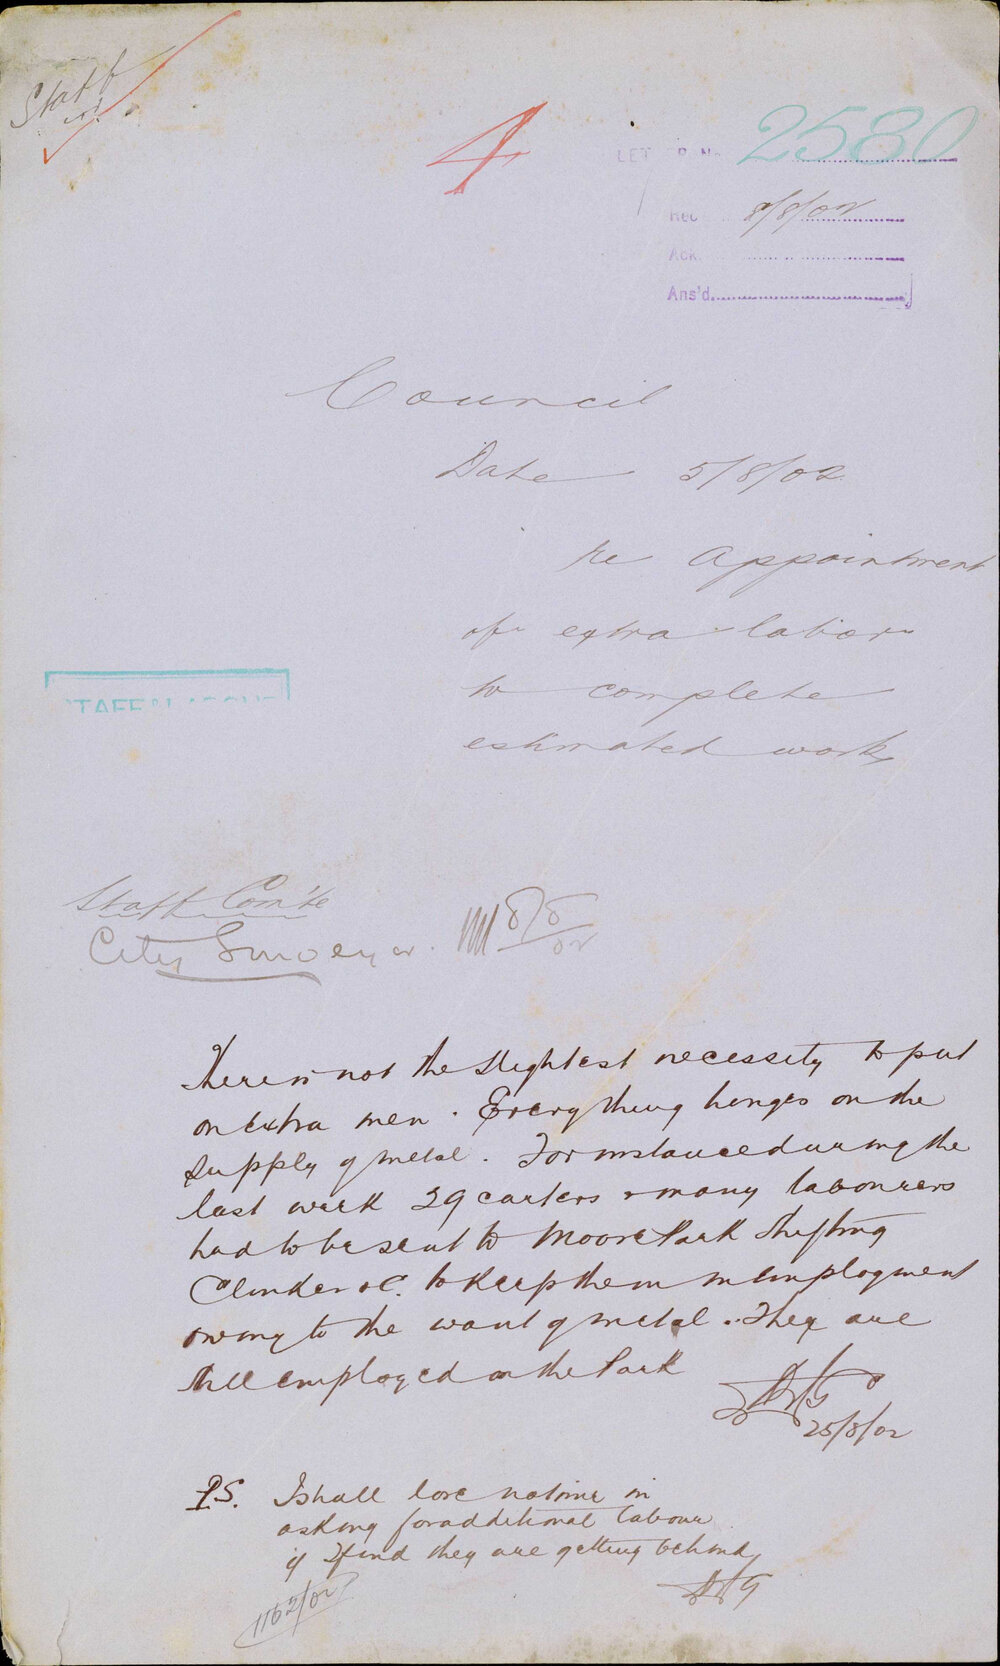 Staff
4
LETTER No 2580
Rec 8/8/02
Ack.
Ans'd
Council
Date 5/8/02
re appointment
of extra labor
to complete
estimated work
STAFF & LABOUR
Staff Com'te
City Surveyor. 8/8/02
There is not the slightest necessity to put
on extra men. Everything hinges on the
supply of metal. For instance during the
last week 29 carters & many labourers
had to be sent to Moore Park shifting
Clinker &c. to keep them in employment
owing to the want of metal. They are
still employed on the Park
25/8/02
P.S. I shall lose no time in
asking for additional labour
if I find they are getting behind
1162/02